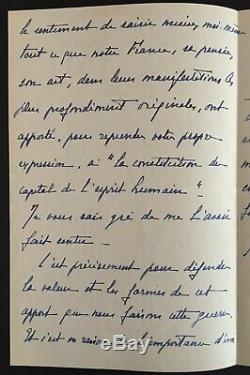 le sentiment de saisir mieux, moi-même
tout ce que notre France, sa pensée,
son art, dans leurs manifestations les
plus profondément originales, ont
apporté, pour reprendre votre propre
expression, à "la constitution du
capital de l'esprit humain".
Je vous sais gré de me l'avoir
fait sentir.
C'est précisément pour défendre
la valeur et les formes de cet
apport que nous faisons cette guerre.
Et c'est en raison de l'importance d'un